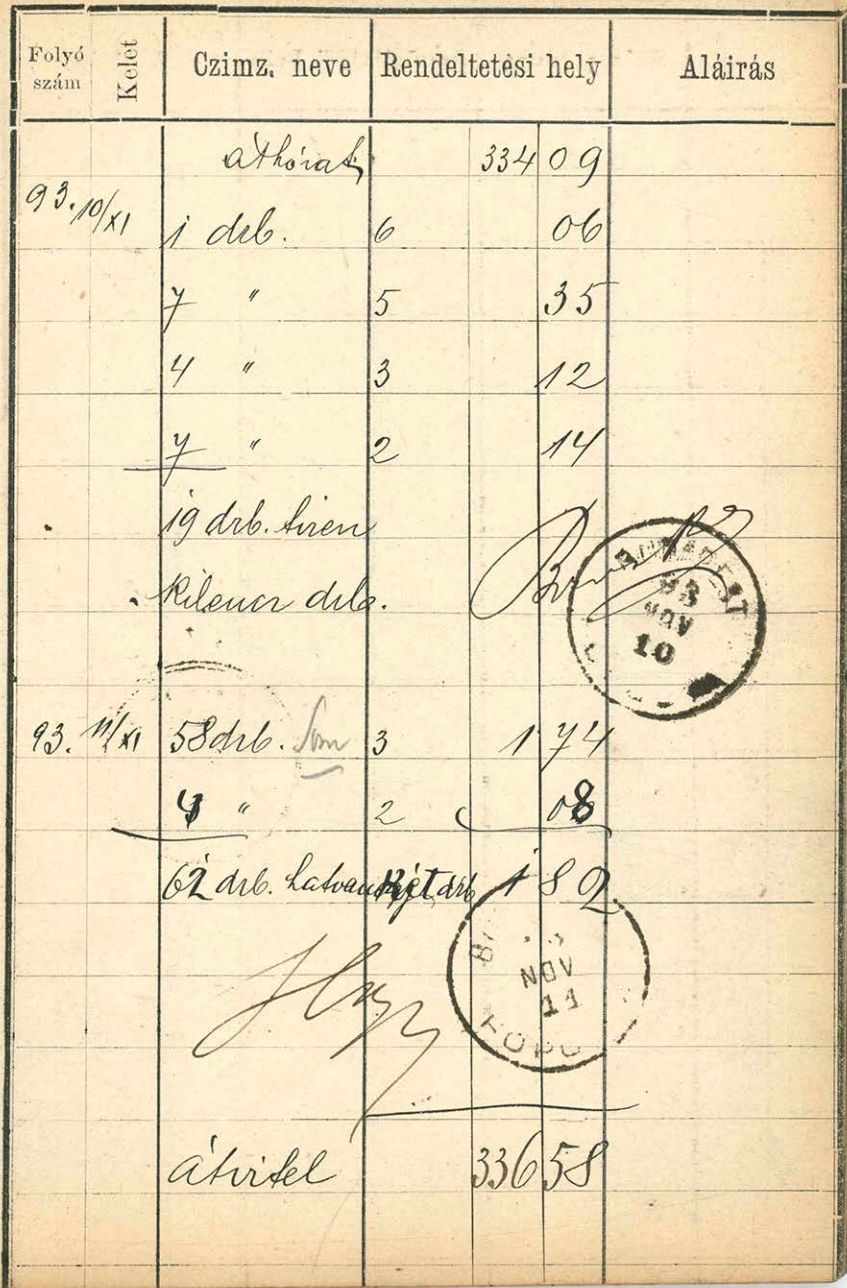 Folyó szám Kelet Czimz. neve Rendeltetési hely Aláirás
áthozat 334 09
93. 10/XI 1 drb. 6 06
7 " 5 35
4 " 3 12
7 " 2 14
19 drb. tizen
kilencz drb.
BUDAPEST
93
NOV
10
93. 11/XI 58 drb. 3 1 74
4 " 2 08
62 drb. hatvankét drb 1 82
NOV
11
átvitel 336 58